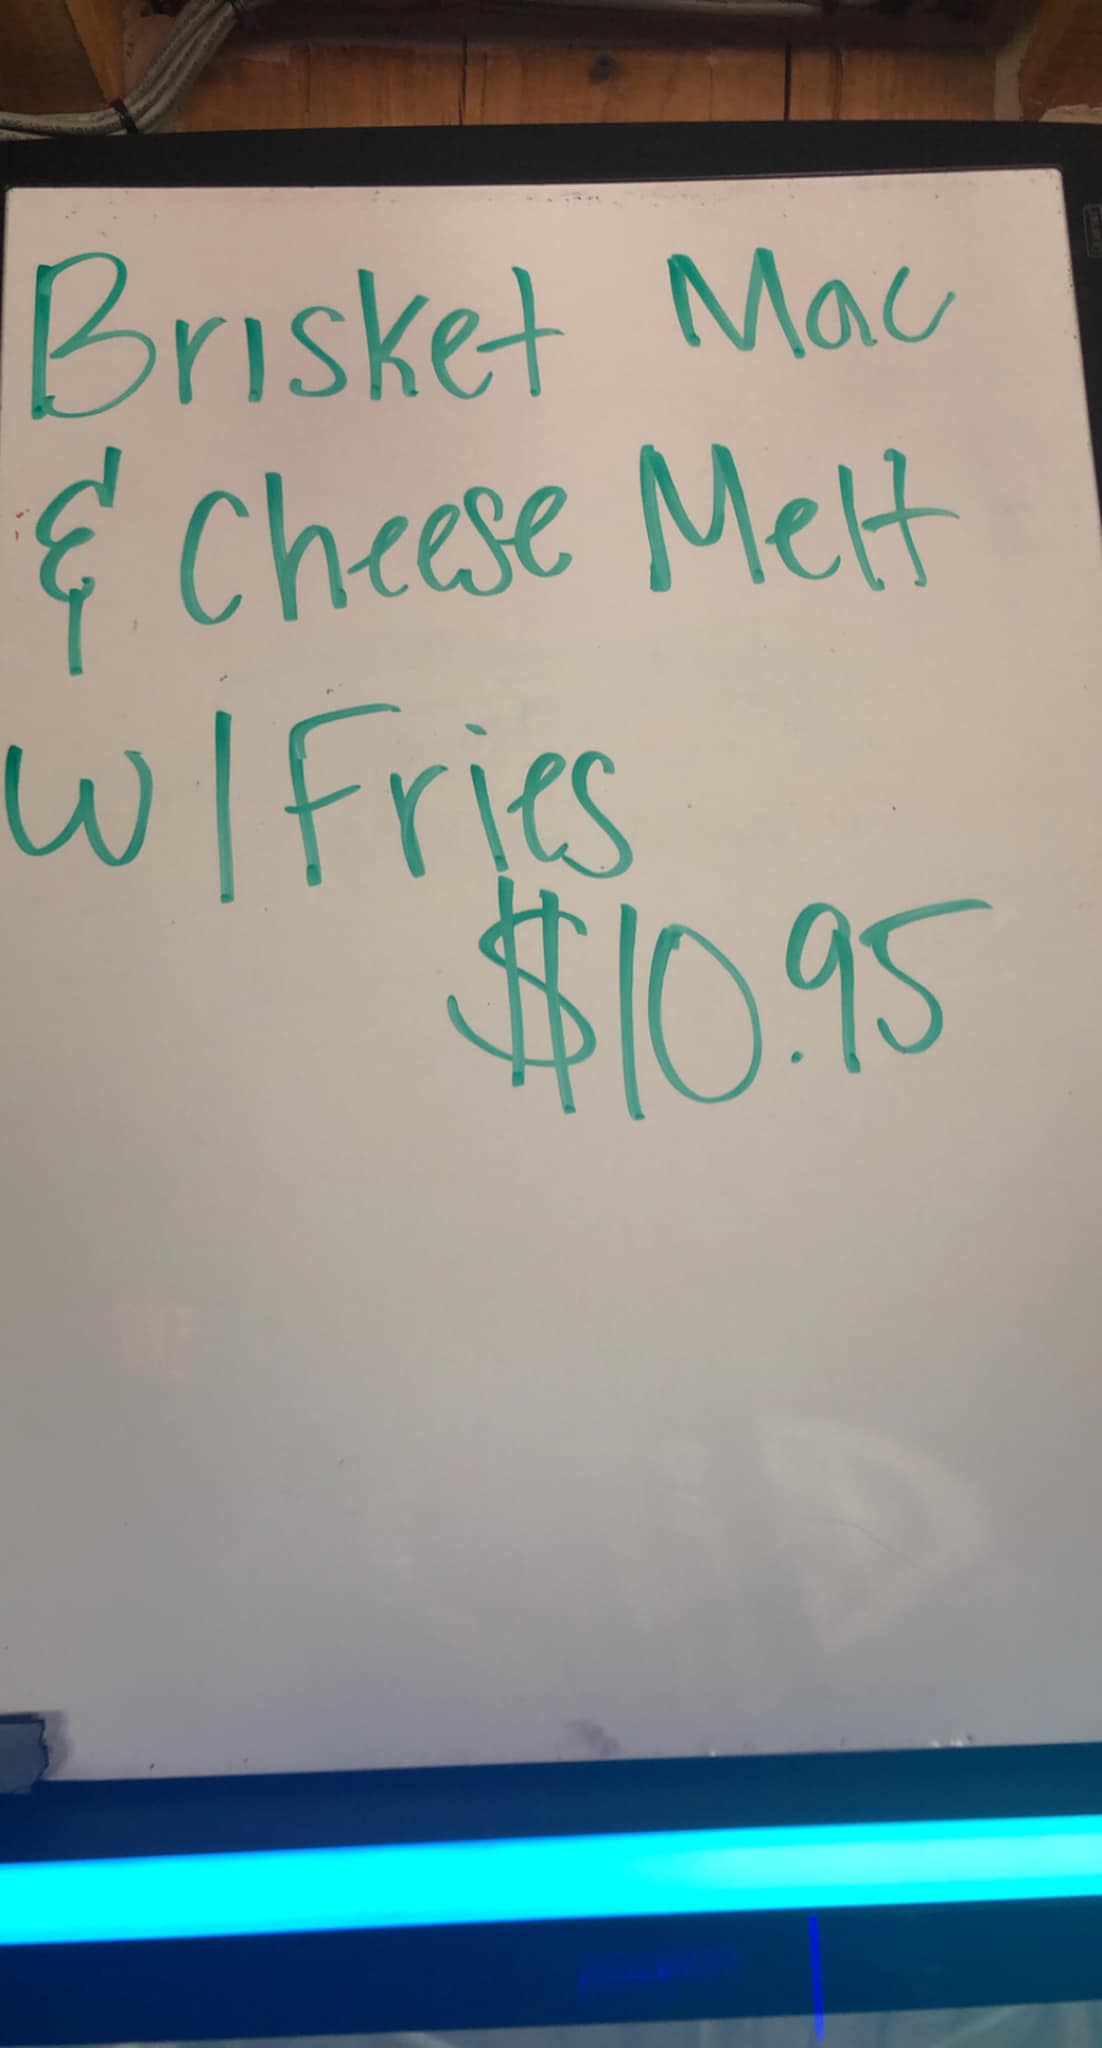 Brisket Mac
& Cheese Melt
W/Fries
$10.95